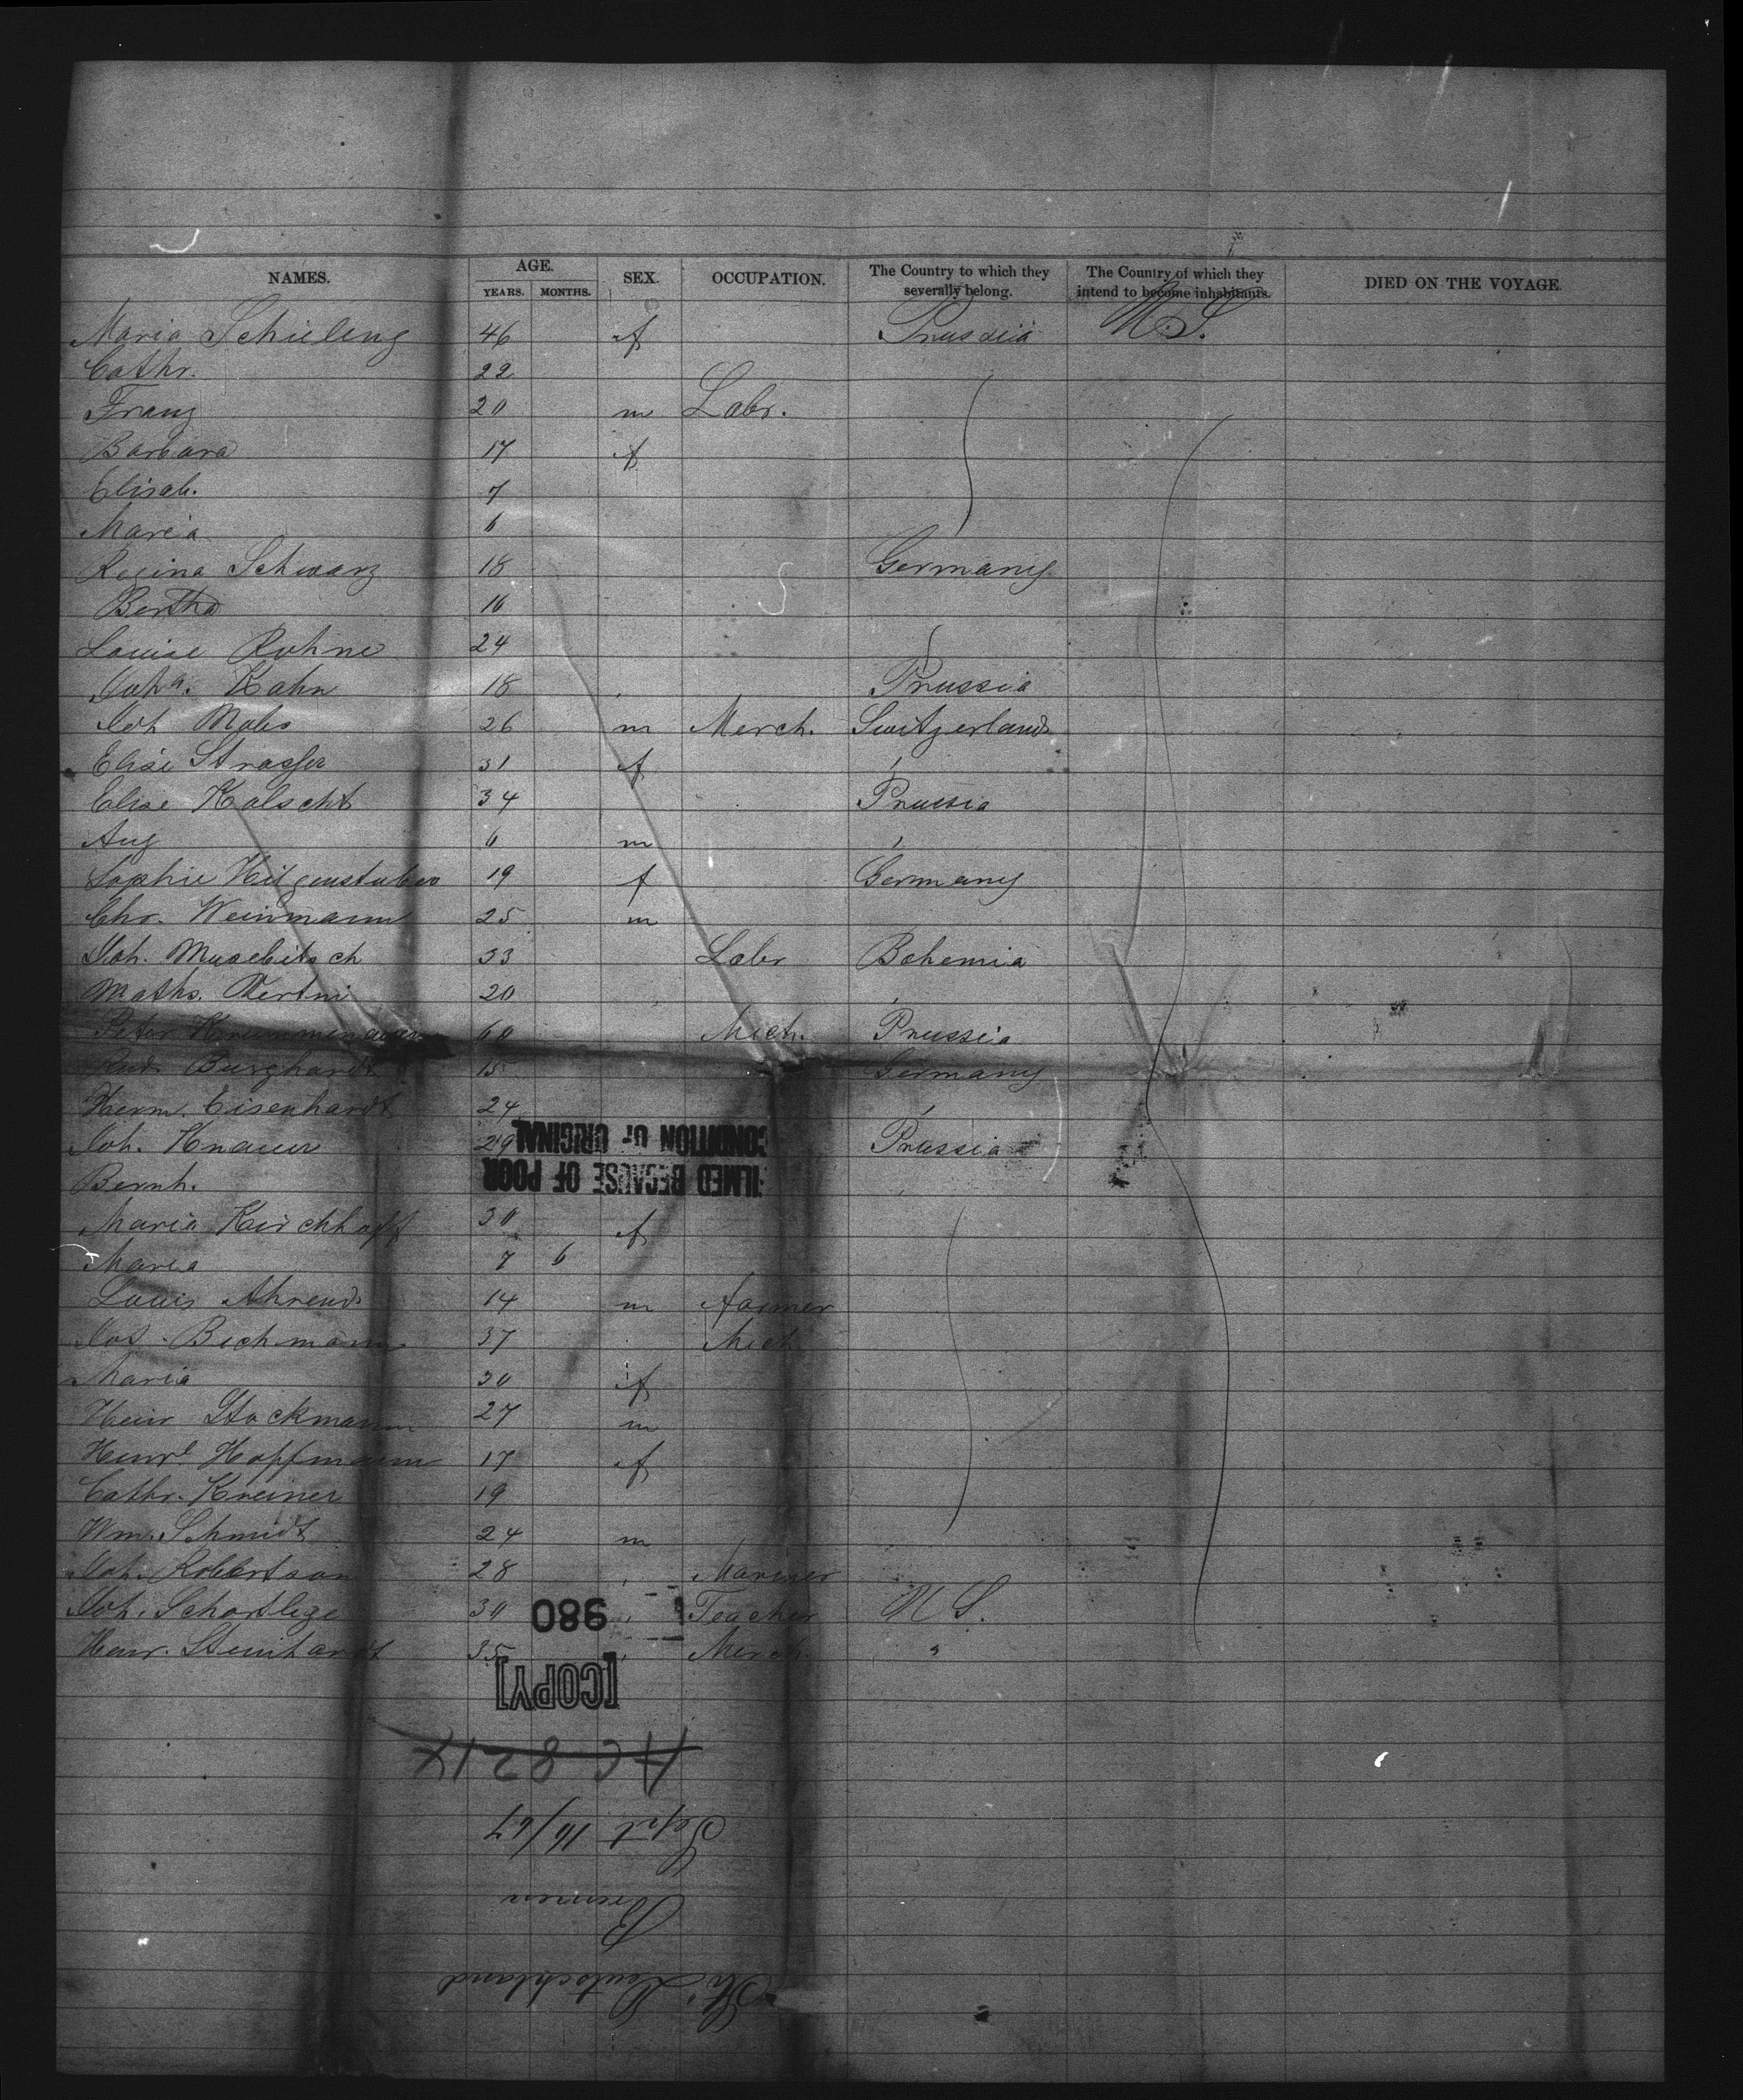 NAMES. AGE. SEX. OCCUPATION. The Country to which they severally belong. The Country of which they intend to become inhabitants. DIED ON THE VOYAGE.
YEARS. MONTHS.
Maria Schieleng 46 f Prussia U.S.
Cathr. 22
Franz 20 m Labr.
Barbara 17 f
Elisab. 7
Maria 6
Regina Schwarz 18 Germany
Bertha 16
Louise Rohne 24
Joha. Kahn 18 Prussia
Joh Mabs 26 m Merch. Switzerland
Elise Strasser 31 f
Elise Kalscht 34 Prussia
Aug 6 m
Sophie 19 f Germany
Chr. Weinmann 25 m
Joh. 33 Labr Bohemia
Maths. 20
Peter 60 Mech. Prussia
Rud. Burghardt 15 Germany
Herm. Eisenhardt 24
Joh. Knauer 29 Prussia
Bernh.
Maria Kirchhoff 30 f
Maria 7 6
Louis Ahrend 14 m farmer
Jos. Bechmann 37 Mech
Maria 30 f
Heinr Stockmann 27 m
Henrl Hoffmann 17 f
Cathr. Kreiner 19
Wm. Schmidt 24 m
Joh. Robertson 28 Mariner
Joh. Schortlege 30 Teacher U S.
Henr. Steinhardt 35 Merch. "
FILMED BECAUSE OF POOR
CONDITION OF ORIGINAL
980
[COPY]
Str Deutschland
Bremen
Sept 16/67